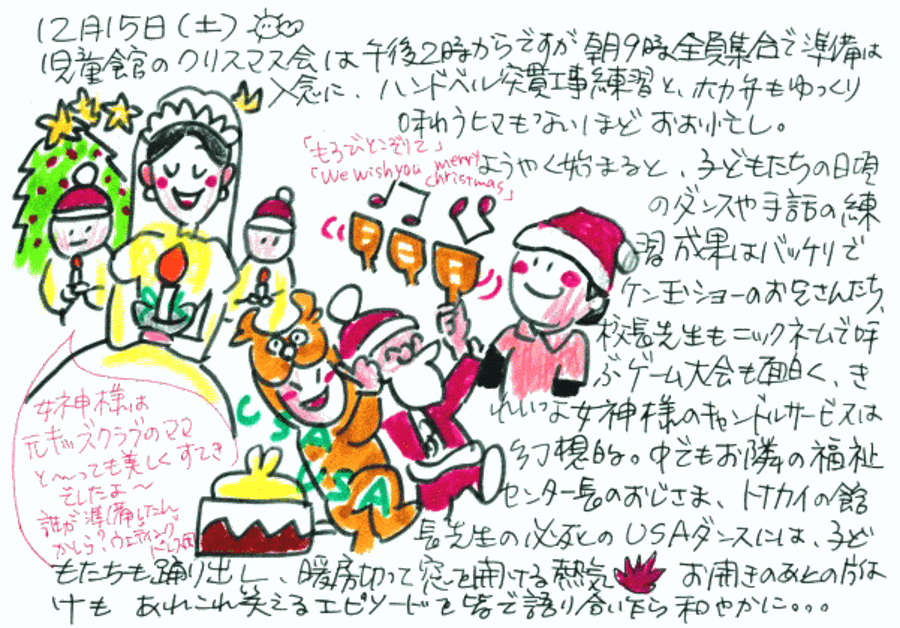 12月15日(土)
児童館のクリスマス会は午後2時からですが朝9時全員集合で準備は
入念に、ハンドベル突貫工事練習と、ホカ弁もゆっくり
味わうヒマもないほど おお忙し。
「もろびとこぞりて」
「We wish you merry christmas」
ようやく始まると、子どもたちの日頃
のダンスや手話の練
習成果はバッチリで
ケン玉ショーのお兄さんたち、
校長先生もニックネームで呼
ぶゲーム大会も面白く、き
れいな女神様のキャンドルサービスは
幻想的。中でもお隣の福祉
センター長のおじさま、トナカイの館
長先生の必死のUSAダンスには、子ど
もたちも踊り出し、暖房切って窓を開ける熱気
お開きのあとの片付
けも あれこれ笑えるエピソードを皆で語り合いながら 和やかに...
女神様は
元キッズクラブのママ
と〜っても美しくすてき
でしたよ〜
誰が準備したん
かしら?ウェディング
ドレス
USA
USA